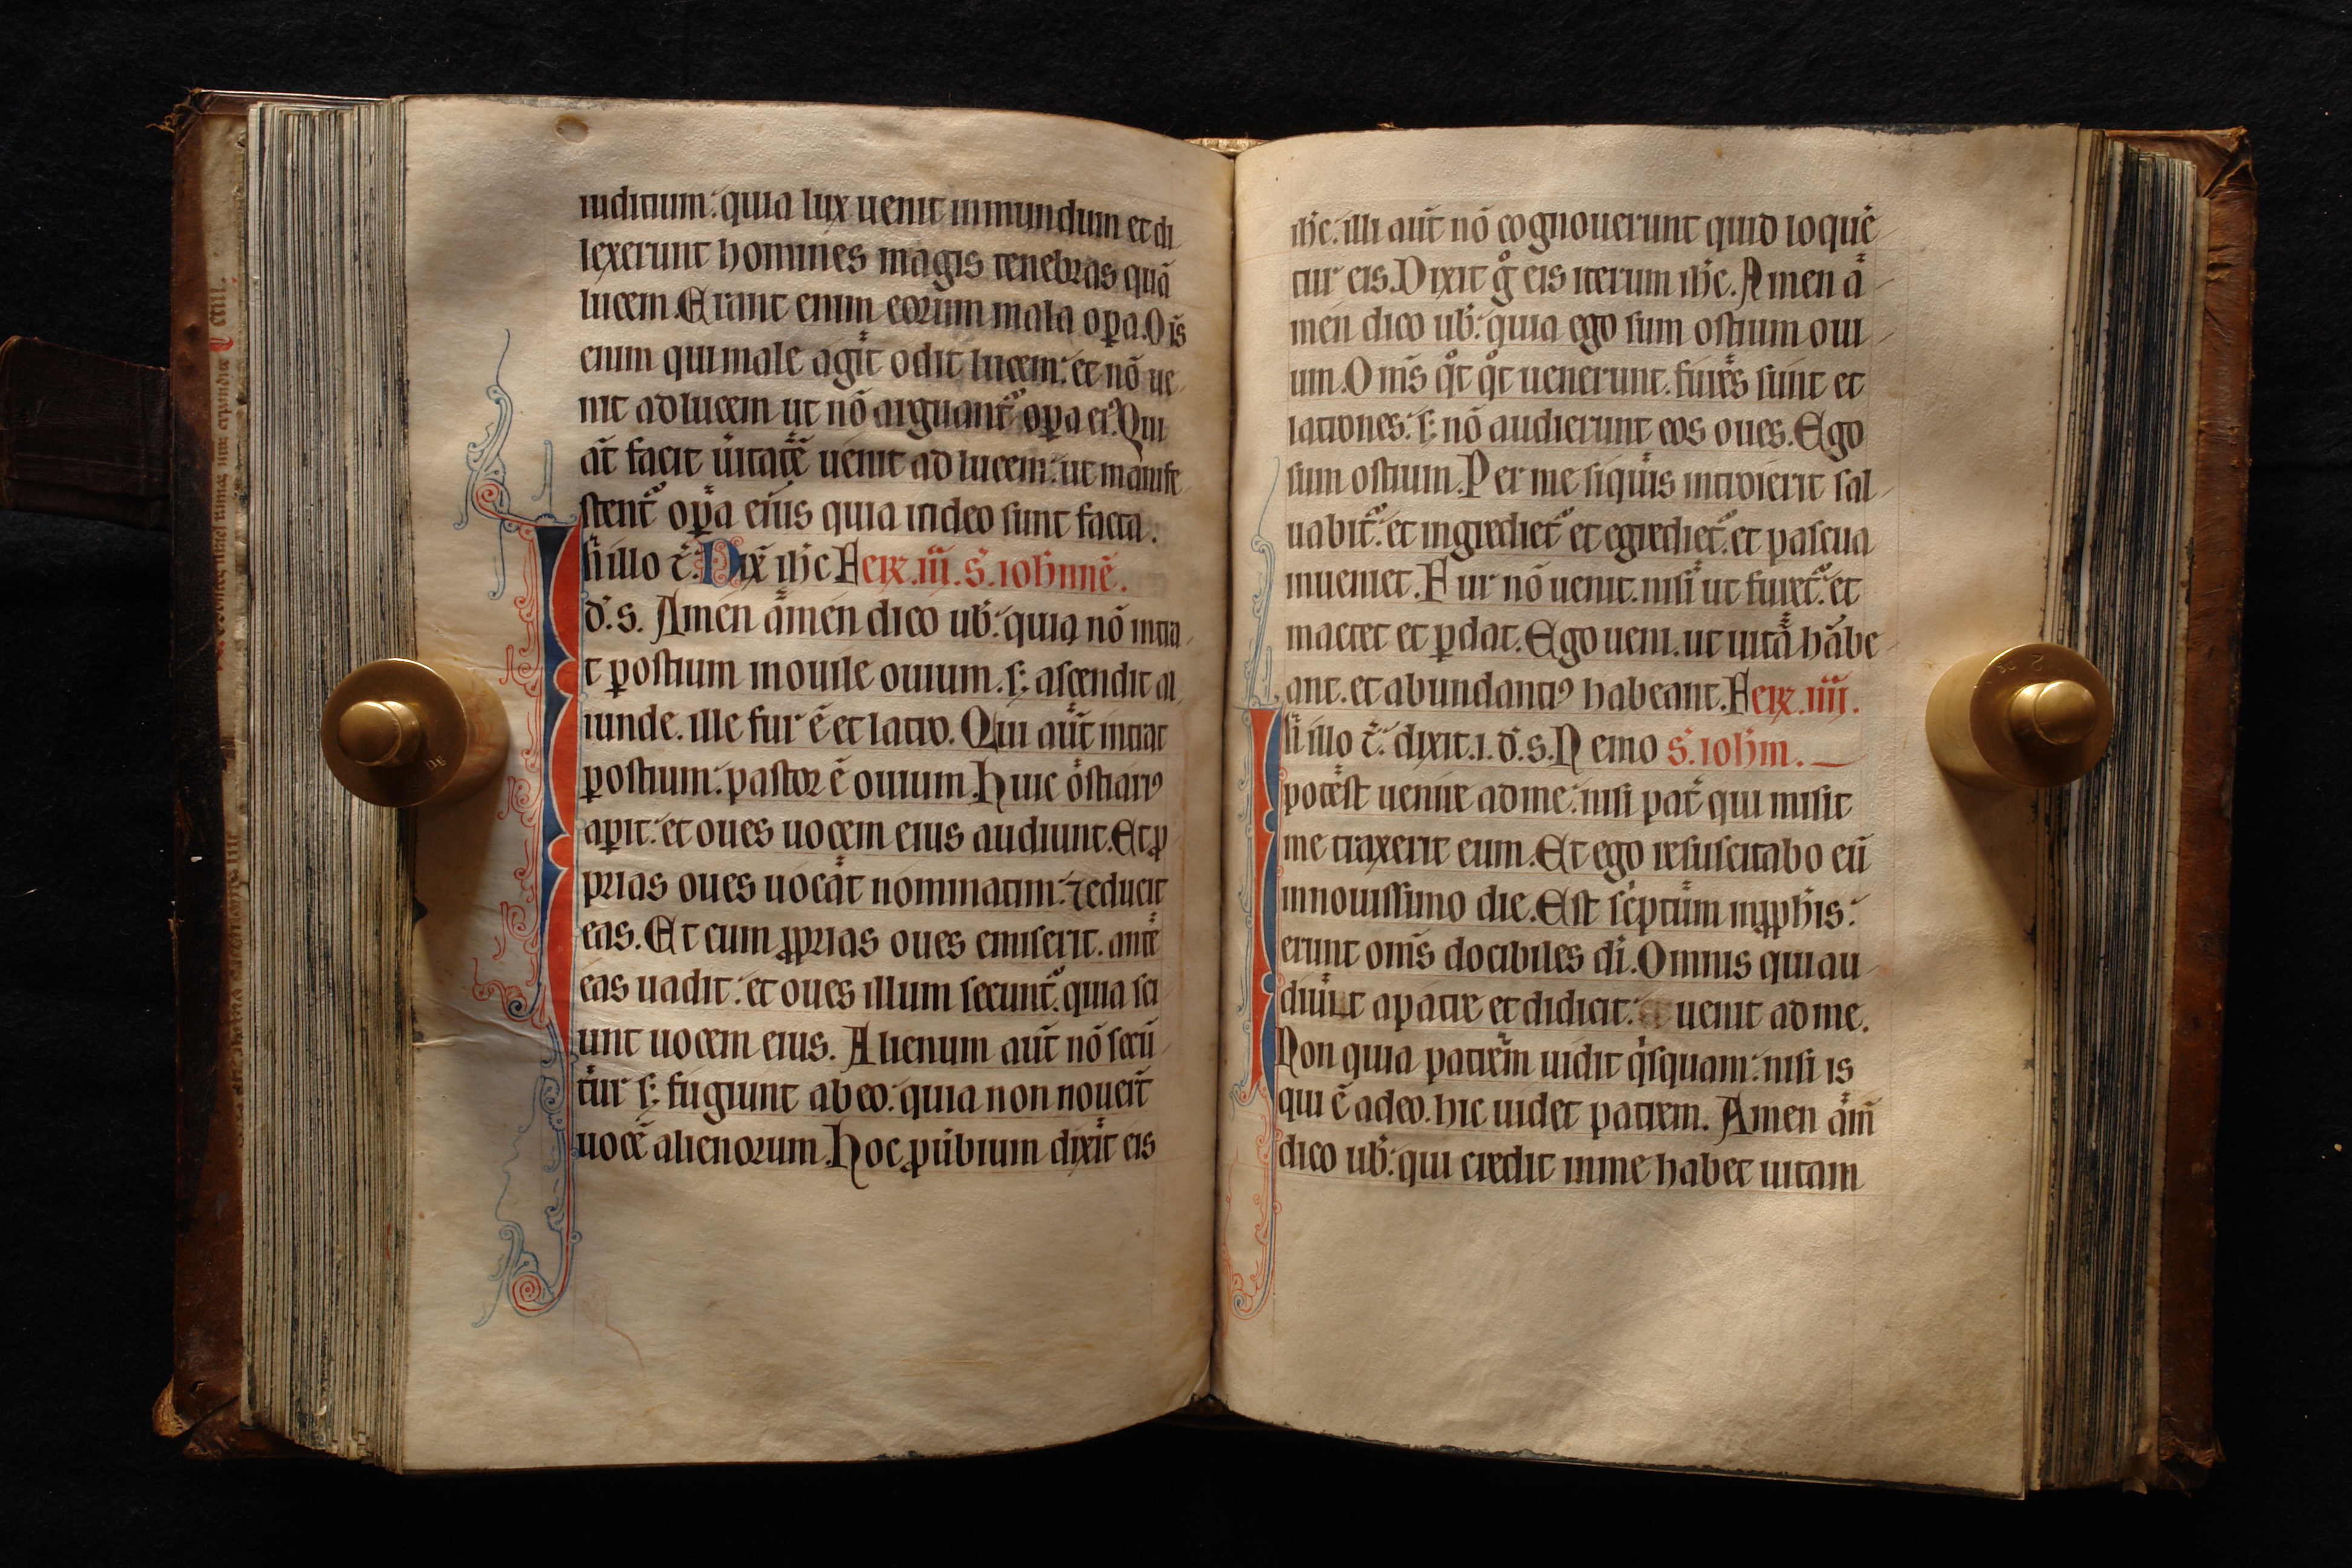 iudicium: quia lux uenit in mundum et di
lexerunt homines magis tenebras quā
lucem. Erant enim eorum mala oꝑa. Oīs
enim qui male agit odit lucem: et nō ue
nit ad lucem ut nō arguant᷑ oꝑa eiꝰ. Qui
aūt facit ūitatē uenit ad lucem: ut manife
stent᷑ oꝑa eius quia in deo sunt facta.
In illo t̄. Dix̄ ih̄c Fer̄. iii. S. ioh̄nnē.
d. s. Amen amen dico ub̄: quia nō intra
t ꝑ ostium in ouile ouium. s; ascendit al
iunde. ille fur ē et latro. Qui aūt intrat
ꝑ ostium: pastor ē ouium. Huic ostiariꝰ
aꝑit: et oues uocem eius audiunt. Et ꝓ
prias oues uocat nominatim: ⁊ educit
eas. Et cum ꝓprias oues emiserit. ante
eas uadit: et oues illum secunt᷑. quia sci
unt uocem eius. Alienum aūt nō secū
tur s; fugiunt ab eo: quia non nouer̄t
uocē alienorum. Hoc ꝓūbium dixit eis
ih̄c. illi aūt nō cognouerunt quid loquē
tur eis. Dixit gͦ eis iterum ih̄c. Amen a
men dico ub̄: quia ego sum ostium oui
um. Om̄s qͦt qͦt uenerunt. fures sunt et
latrones: s; nō audierunt eos oues. Ego
sum ostium. Per me siquis introierit sal
uabit᷑: et ingrediet᷑ et egrediet᷑. et pascua
inueniet. Fur nō uenit. nisi ut furet᷑. et
mactet et ꝑdat. Ego ueni. ut uitā habe
ant. et abundantiꝰ habeant. Fer̄. iiii.
In illo t̄. dixit. i. d. s. Nemo S. ioh̄m.
potest uenire ad me: nisi pat̄ qui misit
me traxerit eum. Et ego resuscitabo eū
in nouissimo die. Est sc̄ptum in ꝓph̄is:
erunt om̄s docibiles di. Omnis qui au
diuit a patre et didicit: uenit ad me.
Non quia patrem uidit qͥsquam: nisi is
qui ē a deo. hic uidet patrem. Amen am̄
dico ub̄: qui credit in me habet uitam